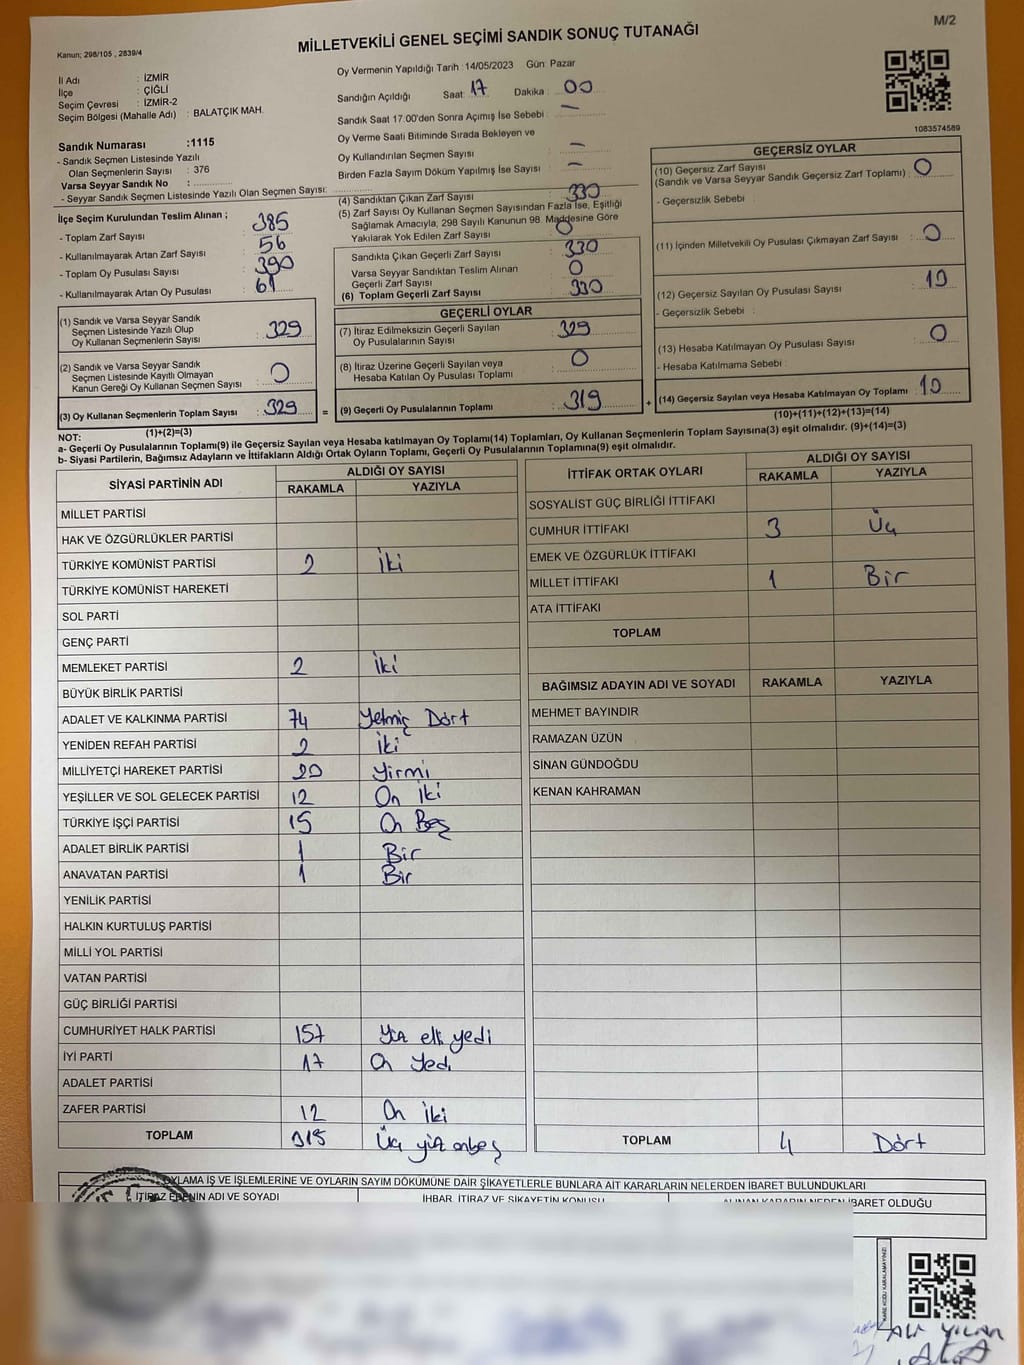 M/2
Kanun; 298/105 , 2839/4
MİLLETVEKİLİ GENEL SEÇİMİ SANDIK SONUÇ TUTANAĞI
İl Adı : İZMİR
İlçe : ÇİĞLİ
Seçim Çevresi : İZMİR-2
Seçim Bölgesi (Mahalle Adı) : BALATÇIK MAH.
Sandık Numarası :1115
- Sandık Seçmen Listesinde Yazılı
Olan Seçmenlerin Sayısı : 376
Varsa Seyyar Sandık No :
- Seyyar Sandık Seçmen Listesinde Yazılı Olan Seçmen Sayısı:
Oy Vermenin Yapıldığı Tarih :14/05/2023 Gün: Pazar
Sandığın Açıldığı Saat: 17 Dakika : 00
Sandık Saat 17:00'den Sonra Açımış İse Sebebi : —
Oy Verme Saati Bitiminde Sırada Bekleyen ve
Oy Kullandırılan Seçmen Sayısı : —
Birden Fazla Sayım Döküm Yapılmış İse Sayısı : —
1083574589
İlçe Seçim Kurulundan Teslim Alınan ;
- Toplam Zarf Sayısı : 385
- Kullanılmayarak Artan Zarf Sayısı : 56
- Toplam Oy Pusulası Sayısı : 390
- Kullanılmayarak Artan Oy Pusulası : 61
(1) Sandık ve Varsa Seyyar Sandık
Seçmen Listesinde Yazılı Olup
Oy Kullanan Seçmenlerin Sayısı : 329
(2) Sandık ve Varsa Seyyar Sandık
Seçmen Listesinde Kayıtlı Olmayan
Kanun Gereği Oy Kullanan Seçmen Sayısı : 0
(3) Oy Kullanan Seçmenlerin Toplam Sayısı : 329
(1)+(2)=(3)
(4) Sandıktan Çıkan Zarf Sayısı : 330
(5) Zarf Sayısı Oy Kullanan Seçmen Sayısından Fazla İse, Eşitliği
Sağlamak Amacıyla, 298 Sayılı Kanunun 98. Maddesine Göre
Yakılarak Yok Edilen Zarf Sayısı : 0
Sandıkta Çıkan Geçerli Zarf Sayısı : 330
Varsa Seyyar Sandıktan Teslim Alınan
Geçerli Zarf Sayısı : 0
(6) Toplam Geçerli Zarf Sayısı : 330
GEÇERLİ OYLAR
(7) İtiraz Edilmeksizin Geçerli Sayılan
Oy Pusulalarının Sayısı : 329
(8) İtiraz Üzerine Geçerli Sayılan veya
Hesaba Katılan Oy Pusulası Toplamı : 0
= (9) Geçerli Oy Pusulalarının Toplamı : 319
GEÇERSİZ OYLAR
(10) Geçersiz Zarf Sayısı
(Sandık ve Varsa Seyyar Sandık Geçersiz Zarf Toplamı) : 0
- Geçersizlik Sebebi :
(11) İçinden Milletvekili Oy Pusulası Çıkmayan Zarf Sayısı : 0
(12) Geçersiz Sayılan Oy Pusulası Sayısı : 10
- Geçersizlik Sebebi :
(13) Hesaba Katılmayan Oy Pusulası Sayısı : 0
- Hesaba Katılmama Sebebi :
+ (14) Geçersiz Sayılan veya Hesaba Katılmayan Oy Toplamı : 10
(10)+(11)+(12)+(13)=(14)
NOT:
a- Geçerli Oy Pusulalarının Toplamı(9) ile Geçersiz Sayılan veya Hesaba katılmayan Oy Toplamı(14) Toplamları, Oy Kullanan Seçmenlerin Toplam Sayısına(3) eşit olmalıdır. (9)+(14)=(3)
b- Siyasi Partilerin, Bağımsız Adayların ve İttifakların Aldığı Ortak Oyların Toplamı, Geçerli Oy Pusulalarının Toplamına(9) eşit olmalıdır.
SİYASİ PARTİNİN ADI ALDIĞI OY SAYISI
RAKAMLA YAZIYLA
MİLLET PARTİSİ
HAK VE ÖZGÜRLÜKLER PARTİSİ
TÜRKİYE KOMÜNİST PARTİSİ 2 İki
TÜRKİYE KOMÜNİST HAREKETİ
SOL PARTİ
GENÇ PARTİ
MEMLEKET PARTİSİ 2 İki
BÜYÜK BİRLİK PARTİSİ
ADALET VE KALKINMA PARTİSİ 74 Yetmiş Dört
YENİDEN REFAH PARTİSİ 2 İki
MİLLİYETÇİ HAREKET PARTİSİ 20 Yirmi
YEŞİLLER VE SOL GELECEK PARTİSİ 12 On İki
TÜRKİYE İŞÇİ PARTİSİ 15 On Beş
ADALET BİRLİK PARTİSİ 1 Bir
ANAVATAN PARTİSİ 1 Bir
YENİLİK PARTİSİ
HALKIN KURTULUŞ PARTİSİ
MİLLİ YOL PARTİSİ
VATAN PARTİSİ
GÜÇ BİRLİĞİ PARTİSİ
CUMHURİYET HALK PARTİSİ 157 Yüz elli yedi
İYİ PARTİ 17 On Yedi
ADALET PARTİSİ
ZAFER PARTİSİ 12 On İki
TOPLAM 315 Üç yüz onbeş
İTTİFAK ORTAK OYLARI ALDIĞI OY SAYISI
RAKAMLA YAZIYLA
SOSYALİST GÜÇ BİRLİĞİ İTTİFAKI
CUMHUR İTTİFAKI 3 Üç
EMEK VE ÖZGÜRLÜK İTTİFAKI
MİLLET İTTİFAKI 1 Bir
ATA İTTİFAKI
TOPLAM
BAĞIMSIZ ADAYIN ADI VE SOYADI RAKAMLA YAZIYLA
MEHMET BAYINDIR
RAMAZAN ÜZÜN
SİNAN GÜNDOĞDU
KENAN KAHRAMAN
TOPLAM 4 Dört
OYLAMA İŞ VE İŞLEMLERİNE VE OYLARIN SAYIM DÖKÜMÜNE DAİR ŞİKAYETLERLE BUNLARA AİT KARARLARIN NELERDEN İBARET BULUNDUKLARI
İTİRAZ EDENİN ADI VE SOYADI İHBAR, İTİRAZ VE ŞİKAYETİN KONUSU ALINAN KARARIN NEDEN İBARET OLDUĞU
KARE KODU KARALAMAYINIZ!